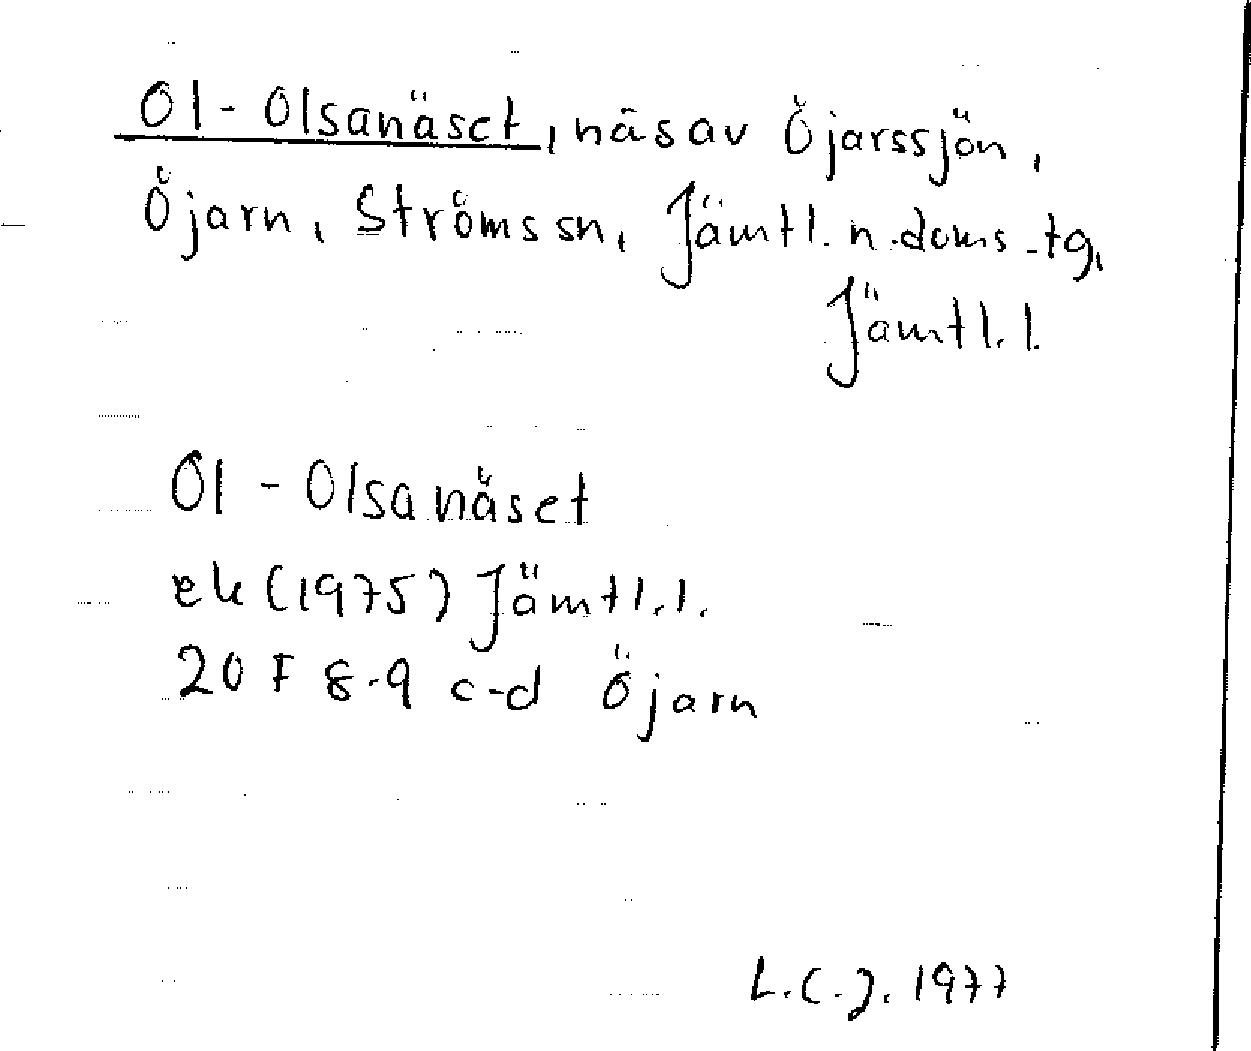 Ol-Olsanäset, näs av Öjarssjön,
Öjarn, Ströms sn, Jämtl. n. doms.-tg,
Jämtl. l.
Ol-Olsanäset
ek (1975) Jämtl. l.
20 F 8-9 c-d Öjarn
L.C.J. 1977